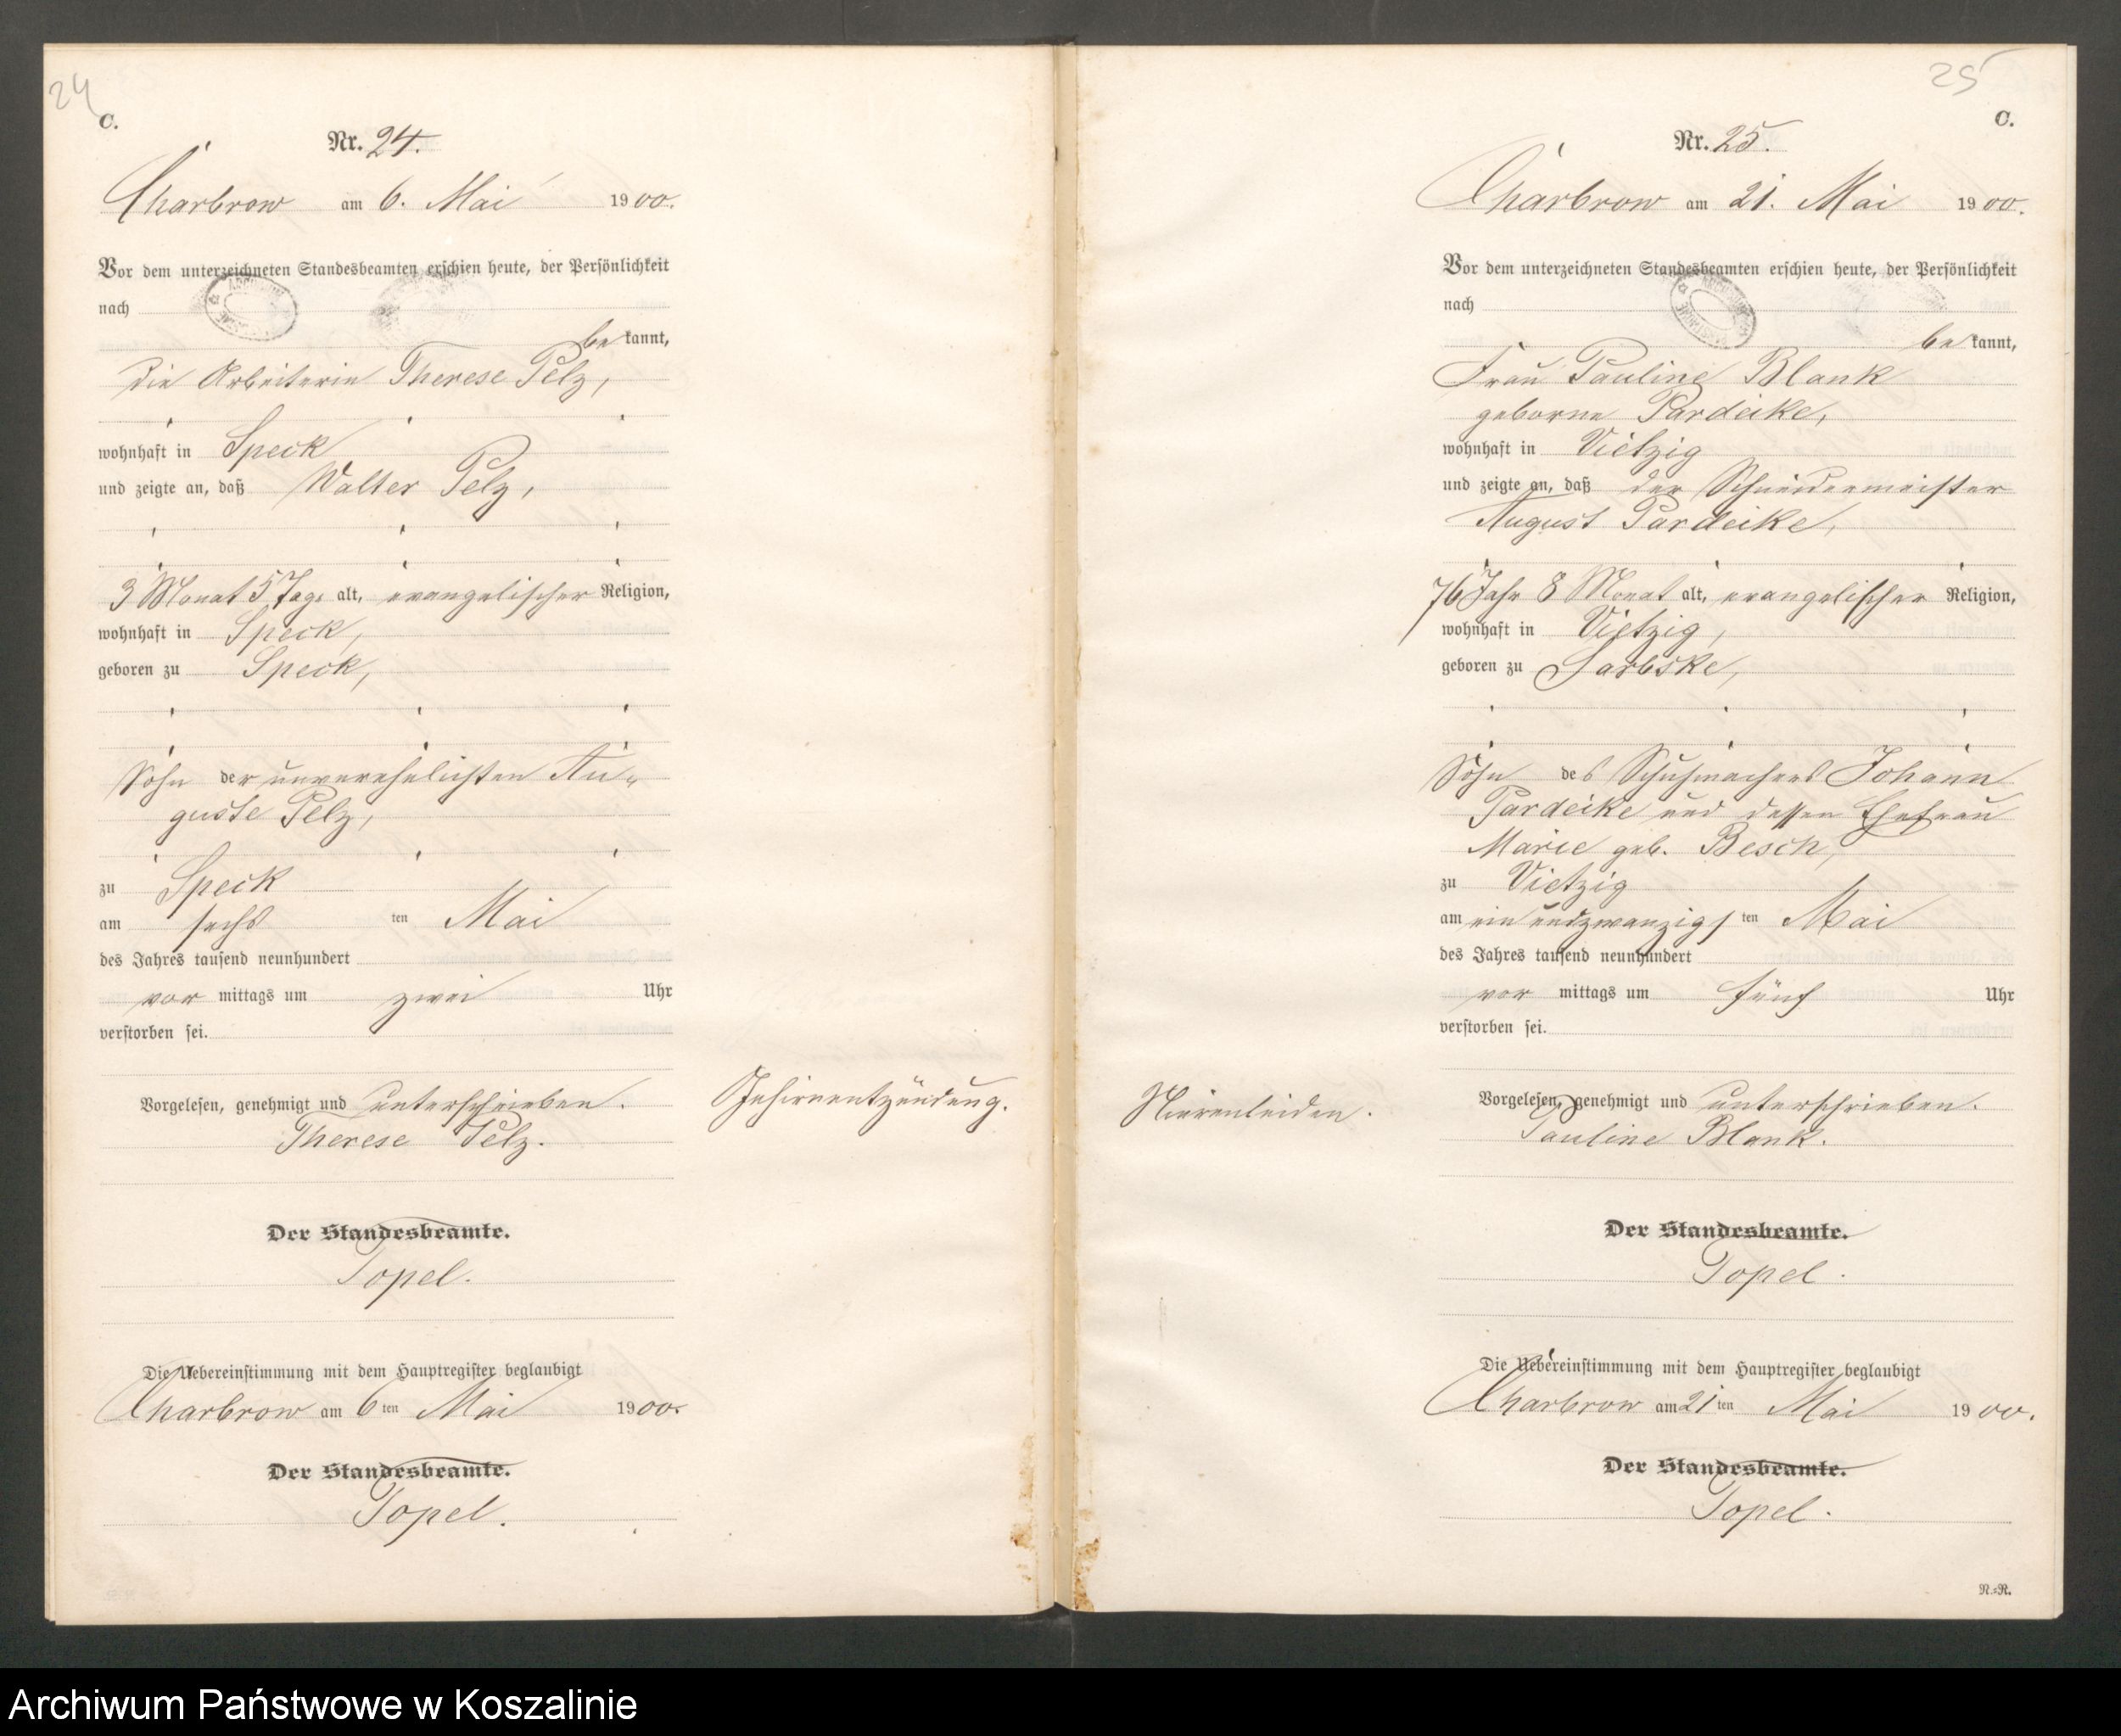 24
C.
Nr. 24.
Charbrow am 6. Mai 1900.
Vor dem unterzeichneten Standesbeamten erschien heute, der Persönlichkeit
nach
bekannt,
die Arbeiterin Therese Pelz,
wohnhaft in Speck
und zeigte an, daß Walter Pelz,
3 Monat 5 Tage alt, evangelischer Religion,
wohnhaft in Speck,
geboren zu Speck,
Sohn der unverehelichten Au-
guste Pelz,
zu Speck
am sechsten Mai
des Jahres tausend neunhundert
vormittags um zwei Uhr
verstorben sei.
Vorgelesen, genehmigt und unterschrieben.
Therese Pelz.
Gehirnentzündung.
Der Standesbeamte.
Topel.
Die Uebereinstimmung mit dem Hauptregister beglaubigt
Charbrow am 6ten Mai 1900.
Der Standesbeamte.
Topel.
25
C.
Nr. 25.
Charbrow am 21. Mai 1900.
Vor dem unterzeichneten Standesbeamten erschien heute, der Persönlichkeit
nach
bekannt,
Frau Pauline Blank
geborne Pardeike,
wohnhaft in Vietzig
und zeigte an, daß der Schneidermeister
August Pardeike,
76 Jahr 8 Monat alt, evangelischer Religion,
wohnhaft in Vietzig,
geboren zu Sarbske,
Sohn des Schuhmachers Johann
Pardeike und dessen Ehefrau
Marie geb. Besch,
zu Vietzig
am ein und zwanzigsten Mai
des Jahres tausend neunhundert
vormittags um fünf Uhr
verstorben sei.
Nierenleiden.
Vorgelesen, genehmigt und unterschrieben.
Pauline Blank.
Der Standesbeamte.
Topel.
Die Uebereinstimmung mit dem Hauptregister beglaubigt
Charbrow am 21ten Mai 1900.
Der Standesbeamte.
Topel.
N.=R.
Archiwum Państwowe w Koszalinie